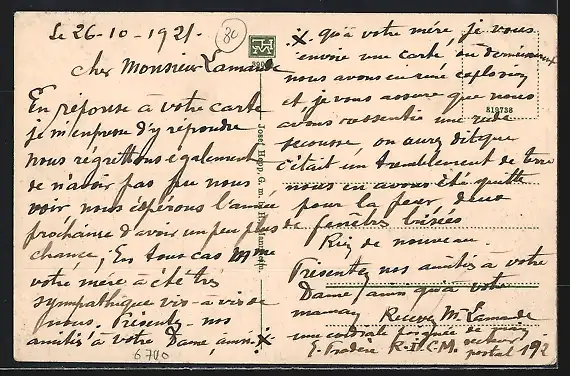 Le 26-10-1921.
80
Cher Monsieur Lamande
En réponse à votre carte
je m'enpresse d'y répondre
nous régrettons également
de n'avoir pas pu nous
voir nous éspérons l'année
prochainse d'avoir un peu plus de
chance, En tous cas Mme
votre mère a été très
sympathique vis-à-vis de
nous. Présentez nos
amitiés à votre Dame, ainsi .x.
6700
Josef Hopp, G. m. b. H., Mannheim.
.x. qu'à votre mère, je vous
envoie une carte, ou dernièrement
nous avons eu une explosion
et, je vous assure que nous
819738
avons ressentie une rude
secousse, on aurez dit que
c'était un tremblement de terre
nous en avons été quitte
pour la peur deux
fenêtres brisées
Rien de nouveau.
Présentez nos amitiés a votre
Dame, ainsi qu'à votre
maman Recevez M. Lamande
une cordiale poignée de main
secteur
postal 192